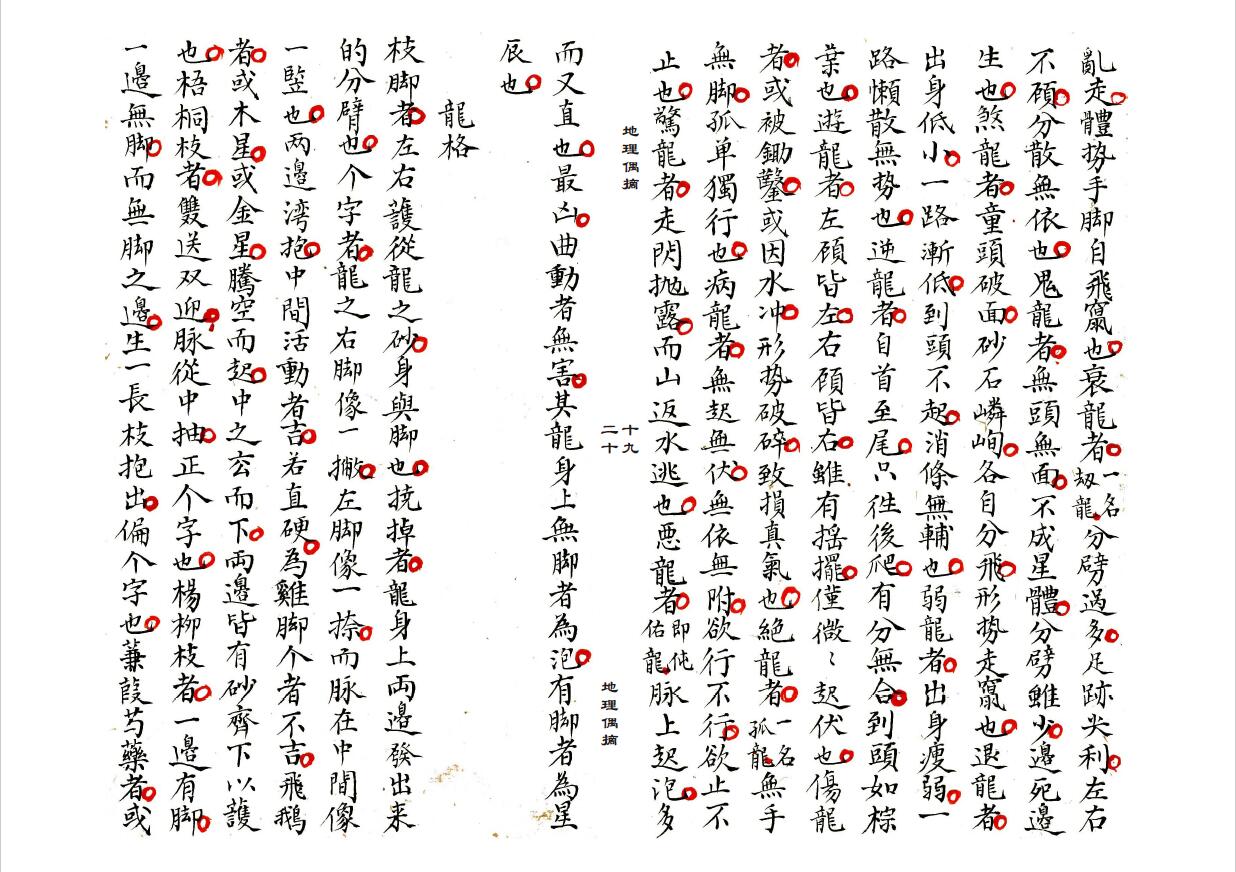 亂走體势手脚自飛竄也衰龍者一名刼龍分劈過多足跡尖利左右
不顧分散無依也鬼龍者無頭無面不成星體分劈雖少邊死邊
生也煞龍者童頭破面砂石嶙峋各自分飛形势走竄也退龍者
出身低小一路漸低到頭不起消條無輔也弱龍者出身瘦弱一
路懶散無势也逆龍者自首至尾只徃後爬有分無合到頭如棕
葉也遊龍者左顧皆左右顧皆右雖有揺擺僅微〻起伏也傷龍
者或被鋤鑿或因水冲形势破碎致損真氣也絶龍者一名孤龍無手
無脚孤单獨行也病龍者無起無伏無依無附欲行不行欲止不
止也驚龍者走閃抛露而山返水逃也悪龍者即伅佑龍脉上起泡多
地理偶摘
十九
二十
地理偶摘
而又直也最凶曲動者無害其龍身上無脚者為泡有脚者為星
辰也
龍格
枝脚者左右護從龍之砂身與脚也挠掉者龍身上両邊發出来
的分臂也个字者龍之右脚像一撇左脚像一捺而脉在中間像
一竪也两邊湾抱中間活動者吉若直硬為雞脚个者不吉飛鵝
者或木星或金星騰空而起中之玄而下両邊皆有砂齊下以護
也梧桐枝者雙送双迎脉從中抽正个字也楊柳枝者一邊有脚
一邊無脚而無脚之邊生一長枝抱出偏个字也蒹葭芍藥者或